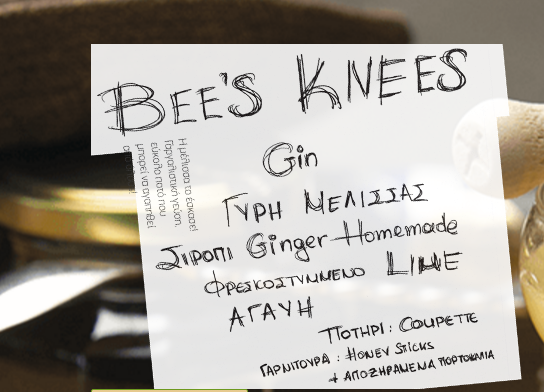 BEE'S KNEES
Η μέλισσα το έσκασε!
Παραγαλιστική γεύση,
εύκολο ποτό που
μπορεί να αγαπηθεί
Gin
ΓΥΡΗ ΜΕΛΙΣΣΑΣ
ΣΙΡΟΠΙ Ginger Homemade
ΦΡΕΣΚΟΣΤΥΜΜΕΝΟ LIME
ΑΓΑΥΗ
ΠΟΤΗΡΙ: COUPETTE
ΓΑΡΝΙΤΟΥΡΑ: HONEY STICKS
+ ΑΠΟΞΗΡΑΜΕΝΑ ΠΟΡΤΟΚΑΛΙΑ